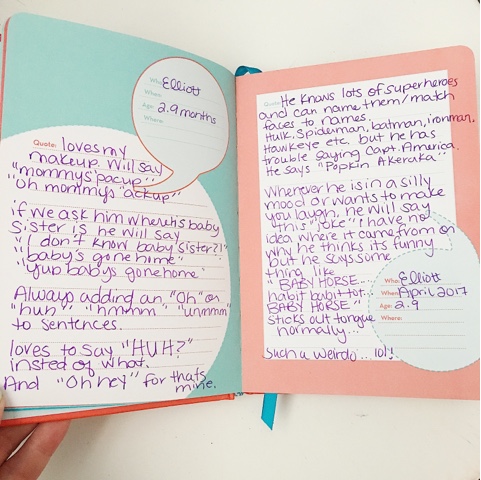 Who: Elliott
When:
Age: 2.9 months
Where:
Quote: loves my
makeup. Will say
"mommy's pacup"
"oh mommy's "ackup"
if we ask him where his baby
sister is he will say
"I don't know baby sister?!"
"baby's gone home"
"Yup babys gone home"
Always adding an "Oh" or
"huh" "hmmm" "ummm"
to sentences.
loves to Say "HUH?"
insted of what.
And "Oh hey" for thats
mine.
Quote: He knows lots of superheroes
and can name them/match
faces to names.
Hulk, Spiderman, batman, ironman,
Hawkeye etc. but he has
trouble saying Capt. America.
He says "Popkin Akeruka"
Whenever he is in a silly
mood or wants to make
you laugh, he will say
this "joke" I have no
idea where it came from or
why he thinks its funny
but he says some
thing like
"BABY HORSE...
habit bubit tot.
BABY HORSE"
sticks out tongue
normally...
Such a weirdo... lol!
Who: Elliott
When: April 2017
Age: 2.9
Where: